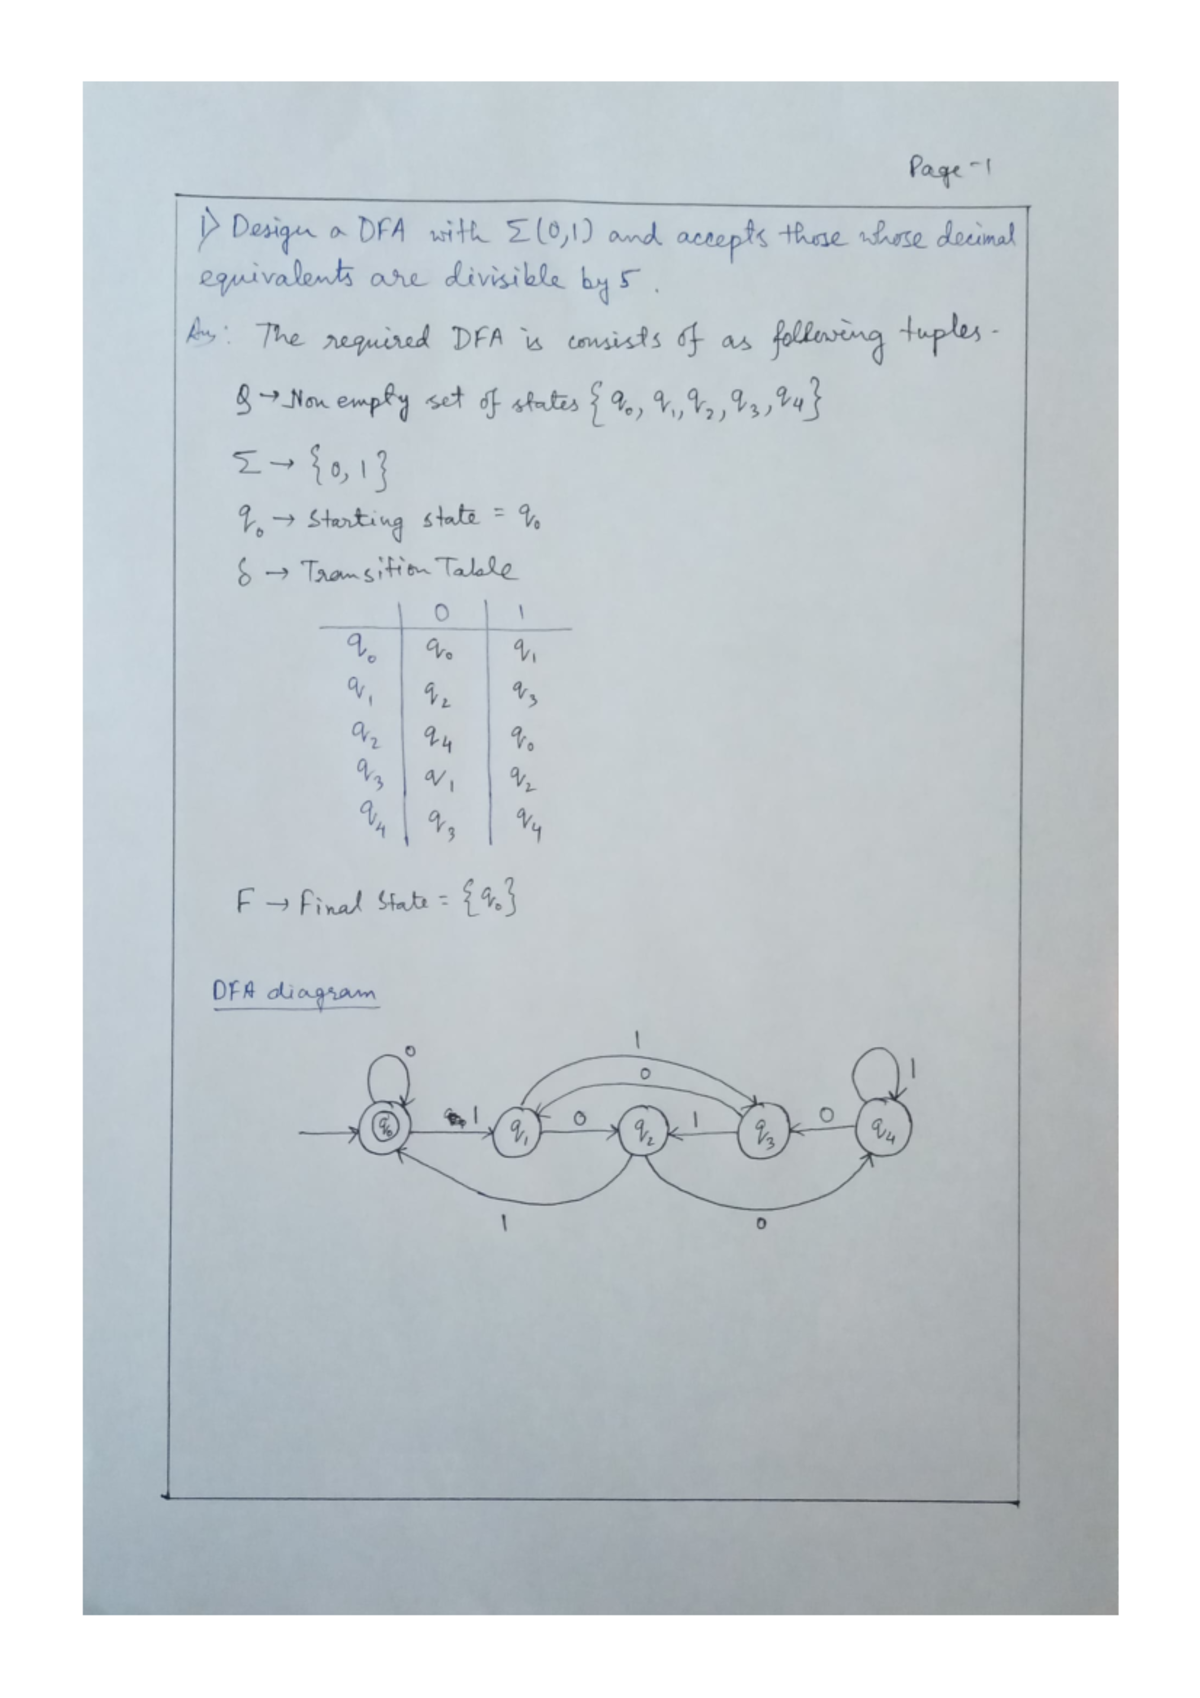 Page-1
1) Design a DFA with Σ(0,1) and accepts those whose decimal
equivalents are divisible by 5.
Ans: The required DFA is consists of as following tuples-
Q → Non empty set of states {q₀, q₁, q₂, q₃, q₄}
Σ → {0,1}
q₀ → Starting state = q₀
δ → Transition Table
0 1
q₀ q₀ q₁
q₁ q₂ q₃
q₂ q₄ q₀
q₃ q₁ q₂
q₄ q₃ q₄
F → Final State = {q₀}
DFA diagram
1
0 0 1
q₀ 1 q₁ 0 q₂ 1 q₃ 0 q₄
1 0